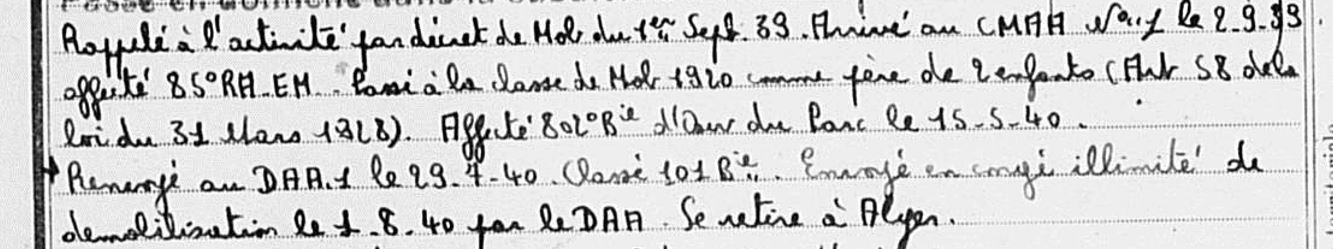 Rappelé à l'activité par décret de Mob du 1er Sept. 39. Arrivé au CMAA N° 1 le 2.9.39
affecté 85°RA-EM. Passé à la classe de Mob 1920 comme père de 2 enfants (Art 58 de la
loi du 31 Mars 1928). Affecté 802°Bie d'Ouv du Parc le 15-5-40.
Renvoyé au DAA.1 le 29-7-40. Classé 101 Bie. Envoyé en congé illimité de
demobilisation le 1-8-40 par le DAA. Se retire à Alger.